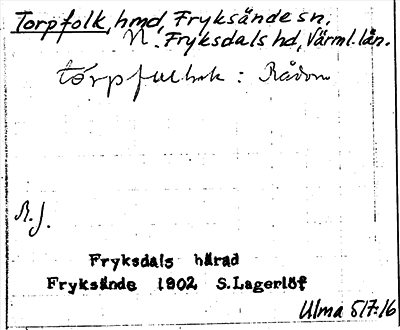 Torpfolk, hmd, Fryksände sn.
N. Fryksdals hd, Värml. län.
Rådom
R.J.
Fryksdals härad
Fryksände 1902 S.Lagerlöf
Ulma 517:16